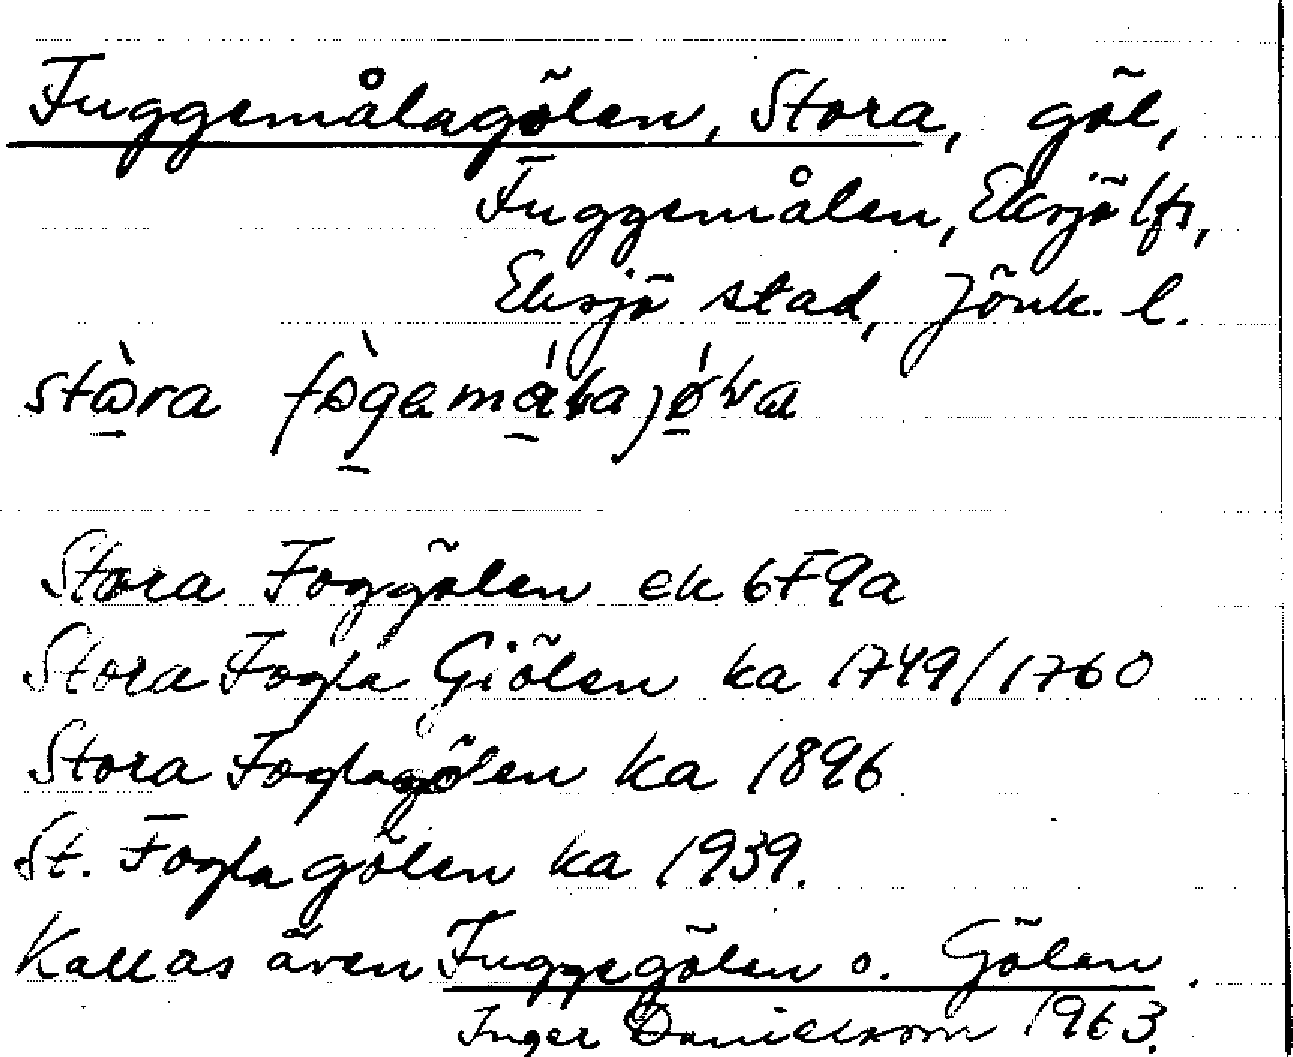 Fuggemålagölen, Stora, göl,
Fuggemålen, Eksjö lfs,
Eksjö stad, Jönk. l.
stora
Stora Foggölen ek 6F9a
Stora Fogla Giölen ka 1749/1760
Stora Foglagölen ka 1896
St. Foglagölen ka 1939.
Kallas även Fuggegölen o. Gölen.
Inger Danielsson 1963.